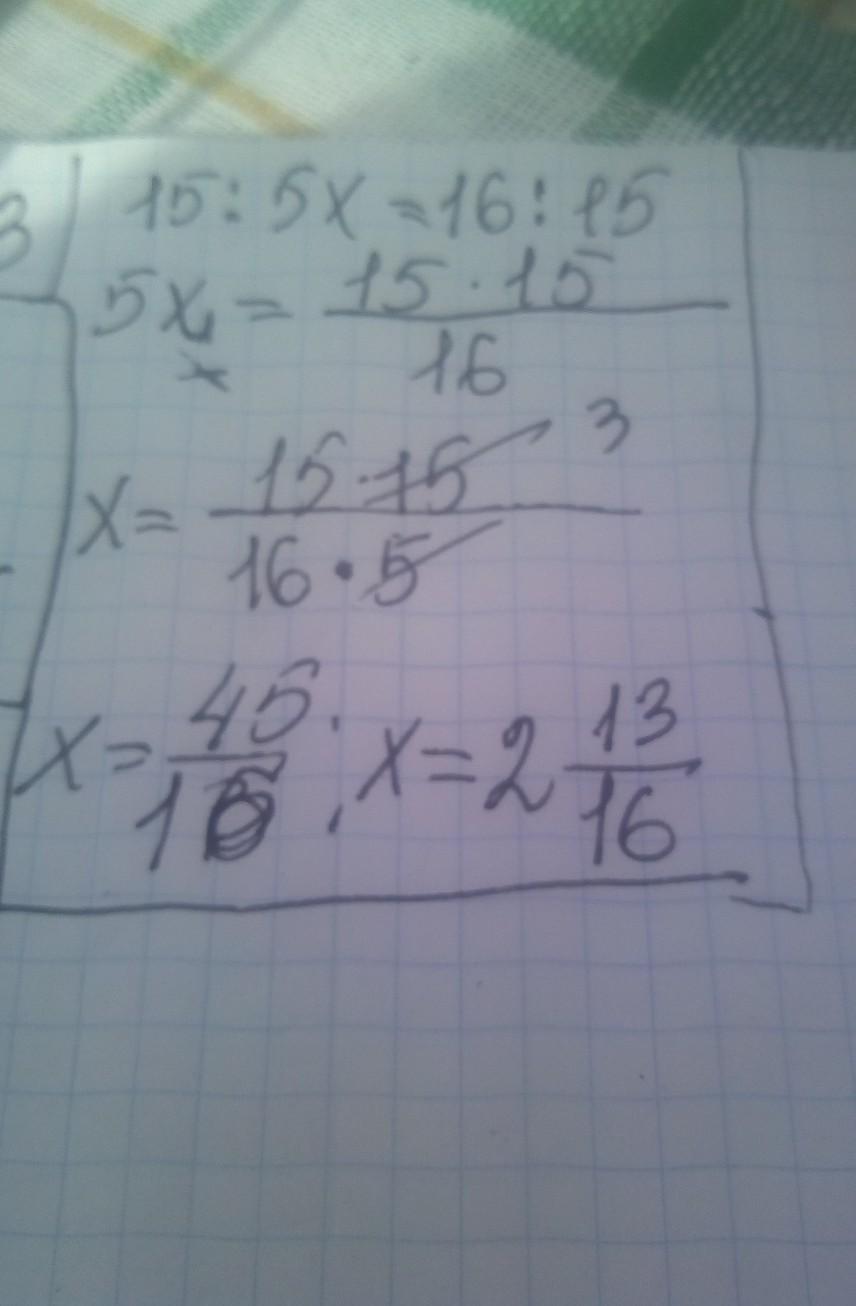 3
15 : 5x = 16 : 15
5x = \frac{15 \cdot 15}{16}
x
x = \frac{15 \cdot 15}{16 \cdot 5} 3
x = \frac{45}{16} ; x = 2 \frac{13}{16}